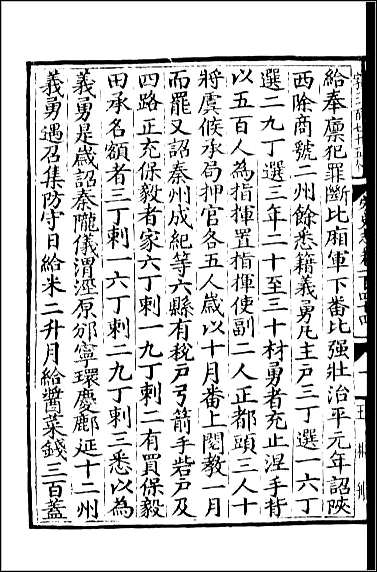 給奉廩犯罪斷比廂軍下番比强壯治平元年詔陝
西除商虢二州餘悉籍義勇凡主户三丁選一六丁
選二九丁選三年二十至三十材勇者充止涅手背
以五百人為指揮置指揮使副二人正都頭三人十
將虞候承局押官各五人歲以十月番上閱教一月
而罷又詔秦州成紀等六縣有稅户弓箭手砦户及
四路正充保毅者家六丁刺一九丁刺二有買保毅
田承名額者三丁刺一六丁刺二九丁刺三悉以為
義勇是歲詔秦隴儀渭涇原邠寧環慶鄜延十二州
義勇遇召集防守日給米二升月給醬菜錢三百蓋